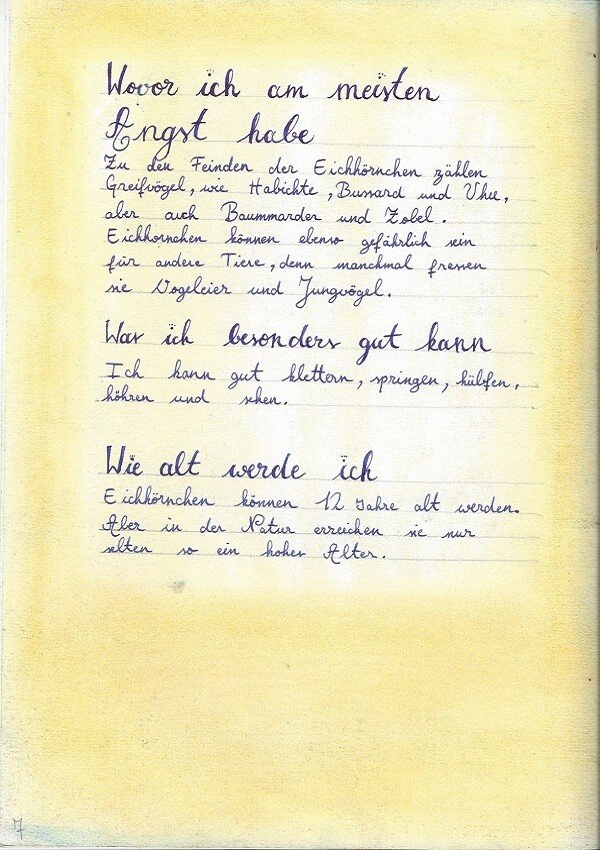 Wovor ich am meisten
Angst habe
Zu den Feinden der Eichhörnchen zählen
Greifvögel, wie Habichte, Bussard und Uhu,
aber auch Baummarder und Zobel.
Eichhornchen können ebenso gefährlich sein
für andere Tiere, denn manchmal fressen
sie Vogeleier und Jungvögel.
Was ich besonders gut kann
Ich kann gut klettern, springen, hüpfen,
höhren und sehen.
Wie alt werde ich
Eichhörnchen können 12 Jahre alt werden.
Aber in der Natur erreichen sie nur
selten so ein hohes Alter.
7